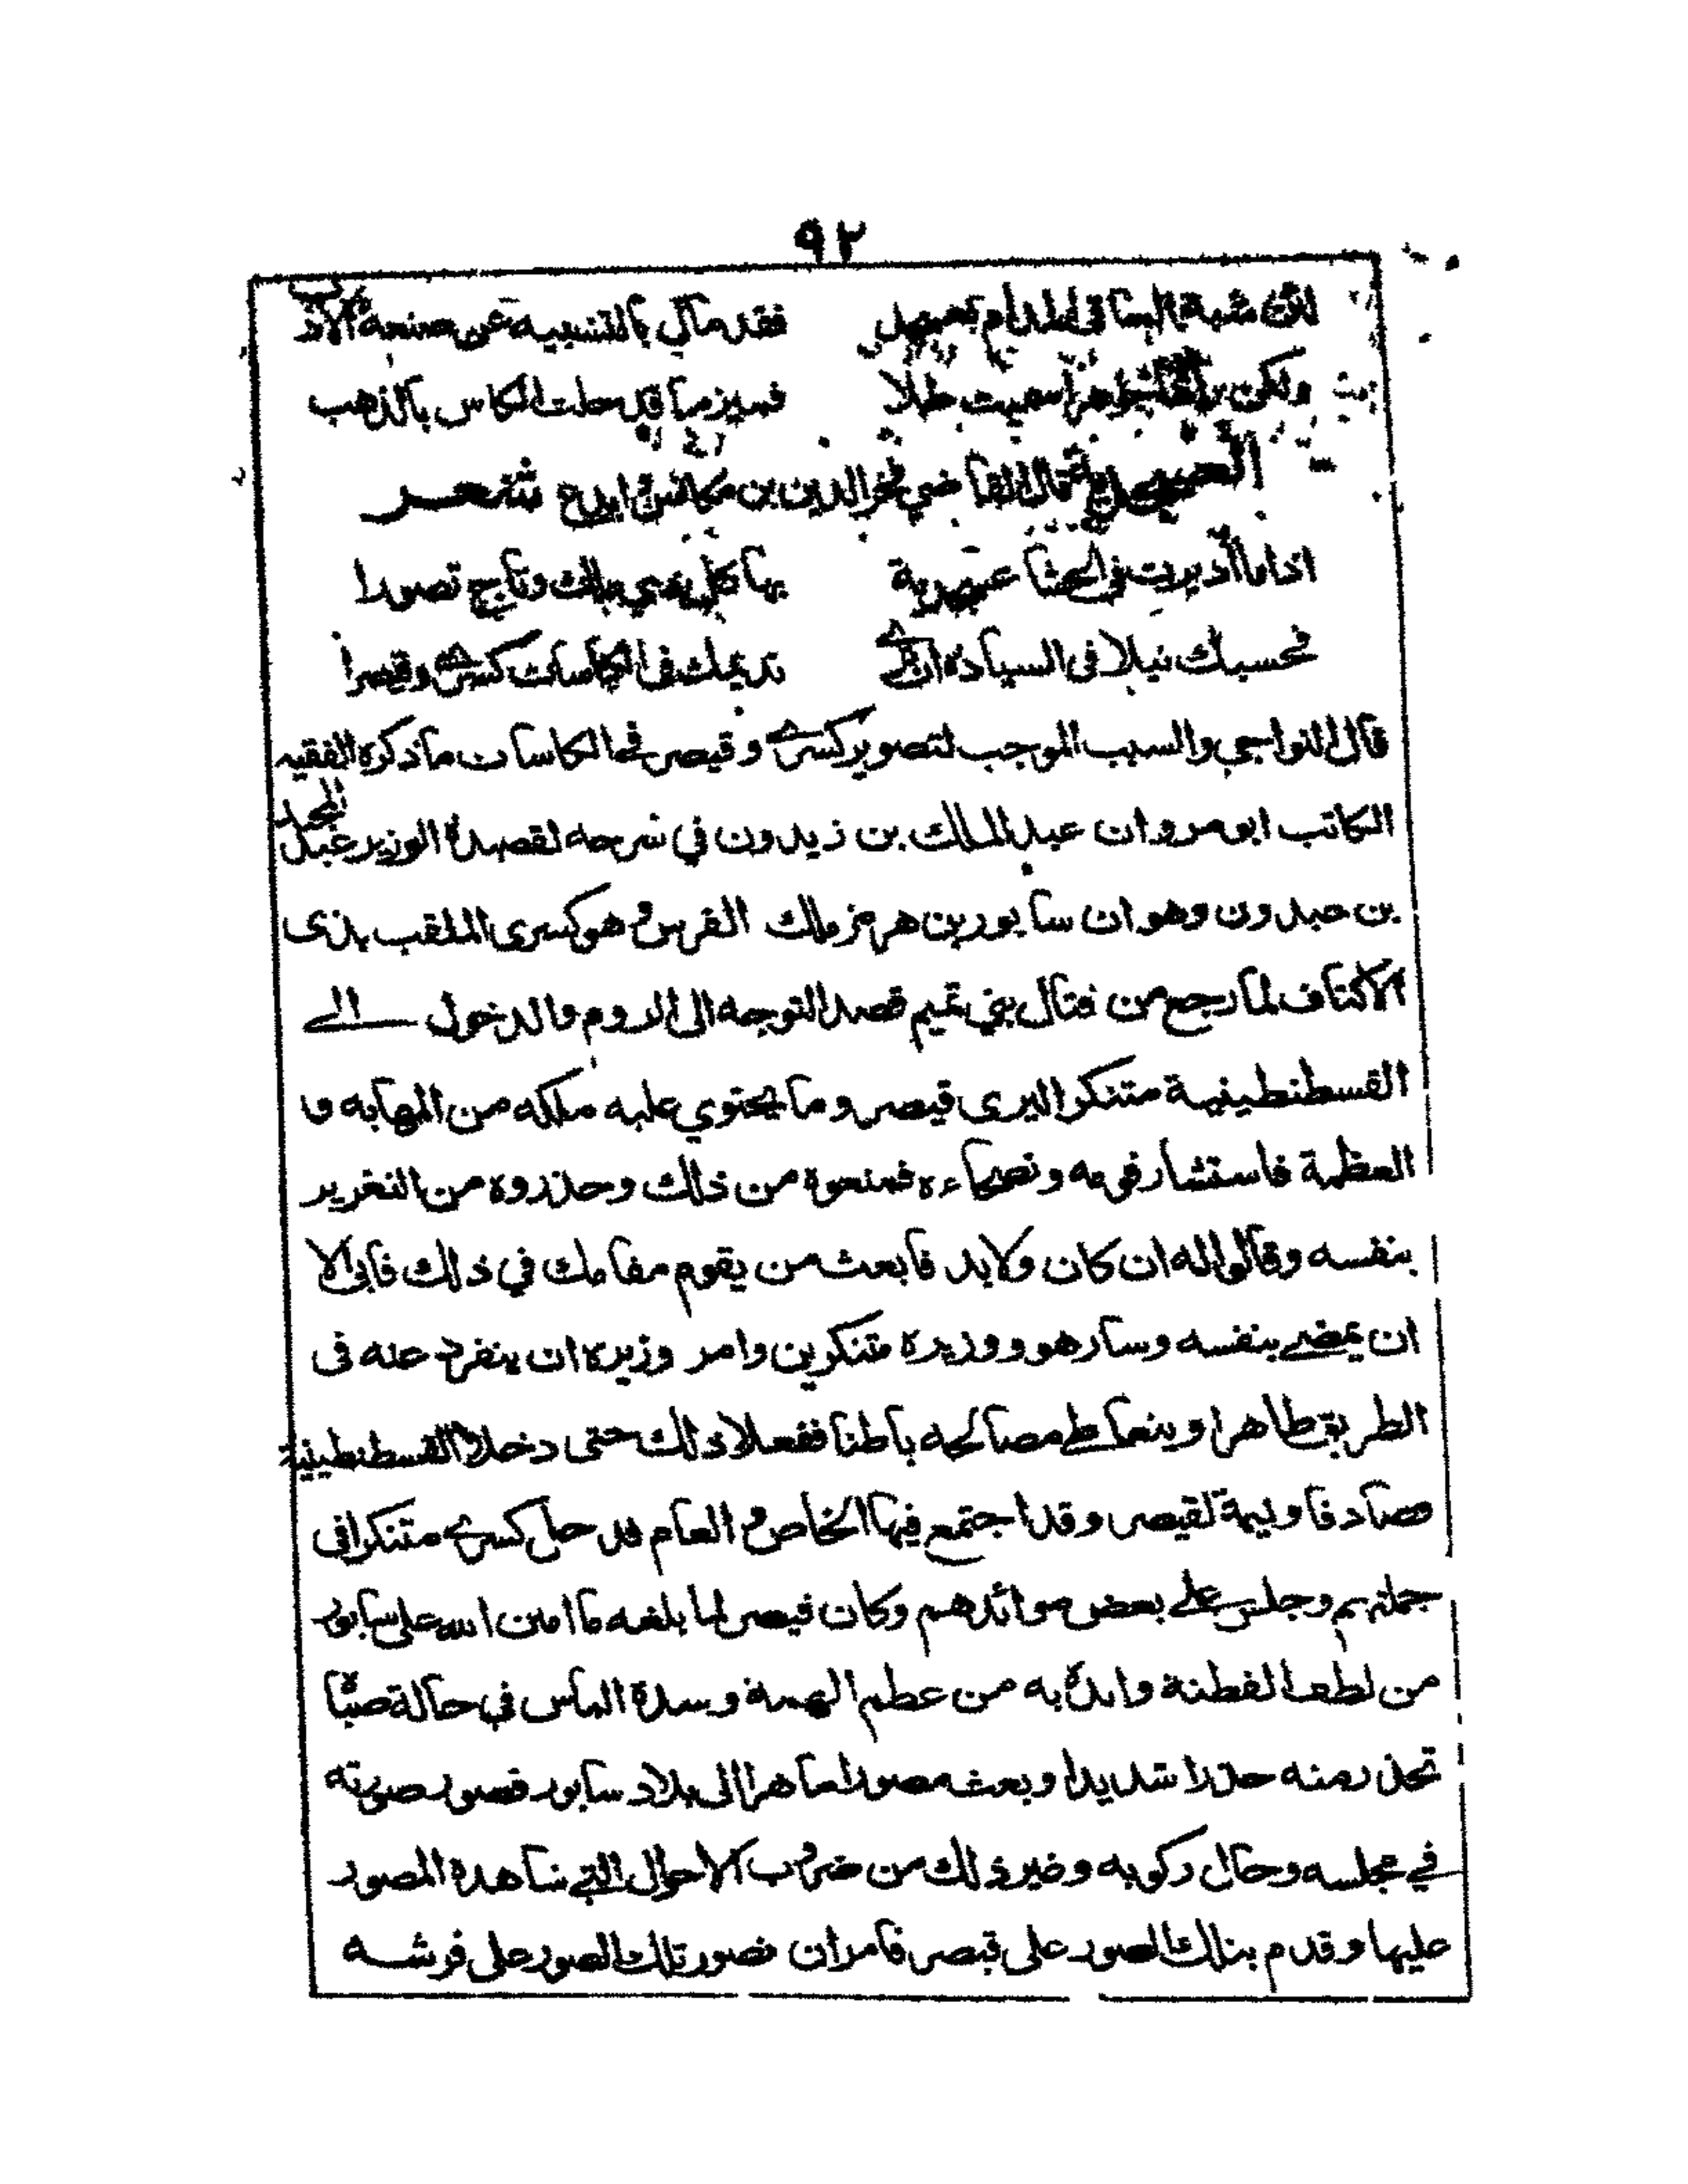 ٩٢
لئن شبه الساقي المدام فقد مال بالتشبيه عن صنعة الادب
ولكن سميت طلا فميز ما قد حلت الكاس بالذهب
القاضي فخر الدين بن مكانس ابدع شعر
اذا ما اديرت في عسجدية بها كل ذي ملك وتاج تصورا
فحسبك نيلا في السيادة ان ترى نديمك في الكاسات كسرى وقيصرا
قال النواجي والسبب الموجب لتصوير كسرى وقيصر في الكاسات ما ذكره الفقيه
الكاتب ابو مروان عبد الملك بن زيدون في شرحه لقصيدة الوزير عبد المجيد
بن عبدون وهو ان سابور بن هرمز ملك الفرس وهو كسرى الملقب بذى
الاكتاف لما رجع من قتال بني تميم قصد التوجه الى الروم والدخول الى
القسطنطينية متنكرا ليرى قيصر وما يحتوي عليه ملكه من المهابه و
العظمة فاستشار قومه ونصحاءه فمنعوه من ذلك وحذروه من التغرير
بنفسه وقالوا له ان كان ولابد فابعث من يقوم مقامك في ذلك فابى الا
ان يمضي بنفسه وسار هو ووزيره متنكرين وامر وزيره ان ينفرد عنه فى
الطريق ظاهرا وينعاطى مصالحه باطنا ففعلا ذلك حتى دخلا القسطنطينية
فصادفا وليمة لقيصر وقد اجتمع فيها الخاص والعام فدخل كسرى متنكرا في
جملتهم وجلس على بعض موائدهم وكان قيصر لما بلغه ما من الله على سابور
من لطف الفطنة وايده به من عظيم الهمة وشدة الباس في حالة صباه
تحذر منه حذرا شديدا وبعث مصورا ماهرا الى بلاد سابور فصور صورته
في مجلسه وحال ركوبه وغير ذلك من ضروب الاحوال التي شاهده المصور
عليها وقدم بتلك الصور على قيصر فامر ان تصور تلك الصور على فرشه